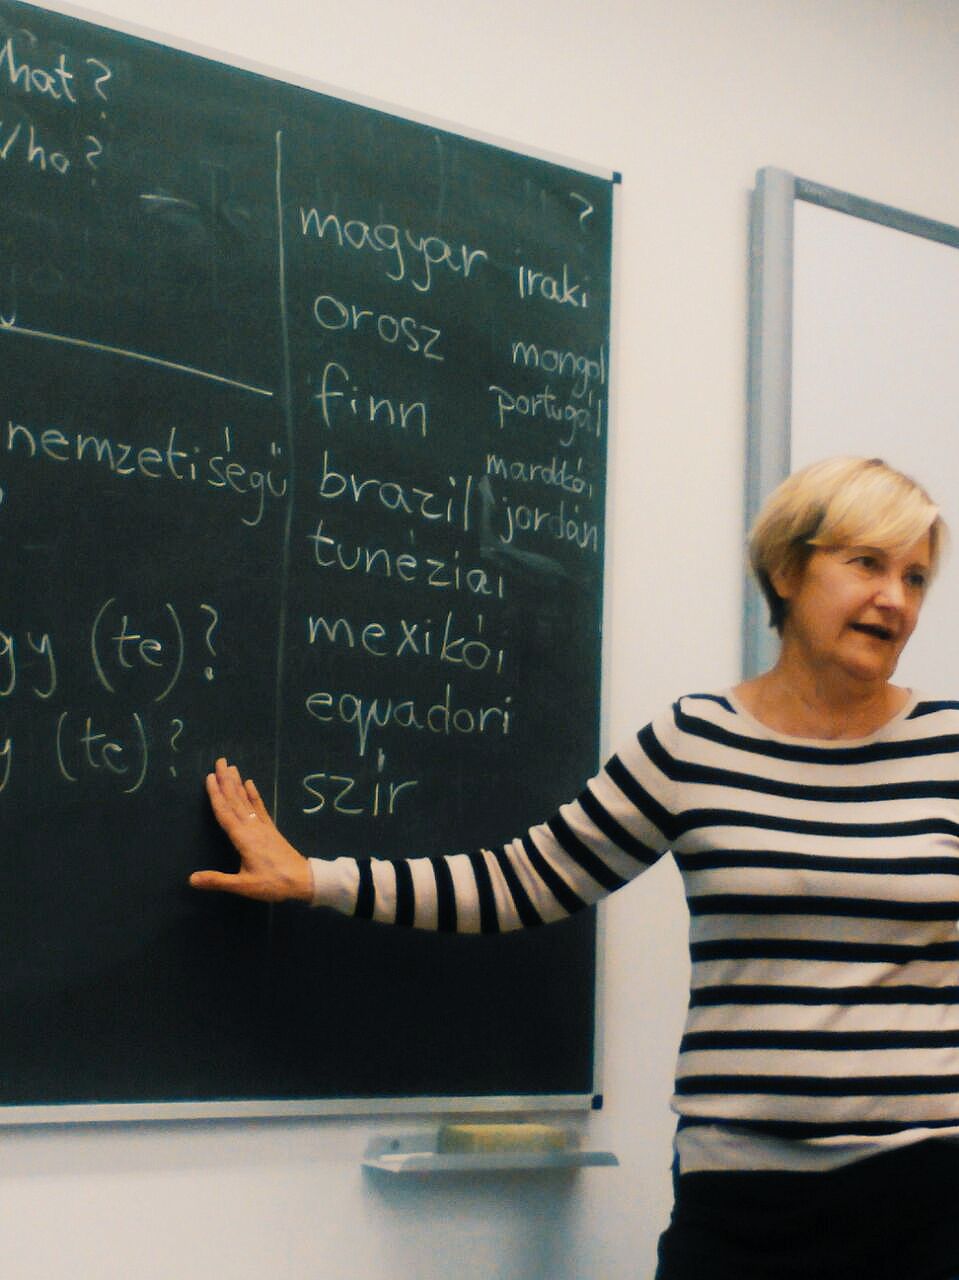 What?
Who?
nemzetiségű
gy (te)?
y (te)?
?
magyar
orosz
finn
brazil
tunéziai
mexikói
equadori
szír
iraki
mongol
portugál
marokkói
jordán